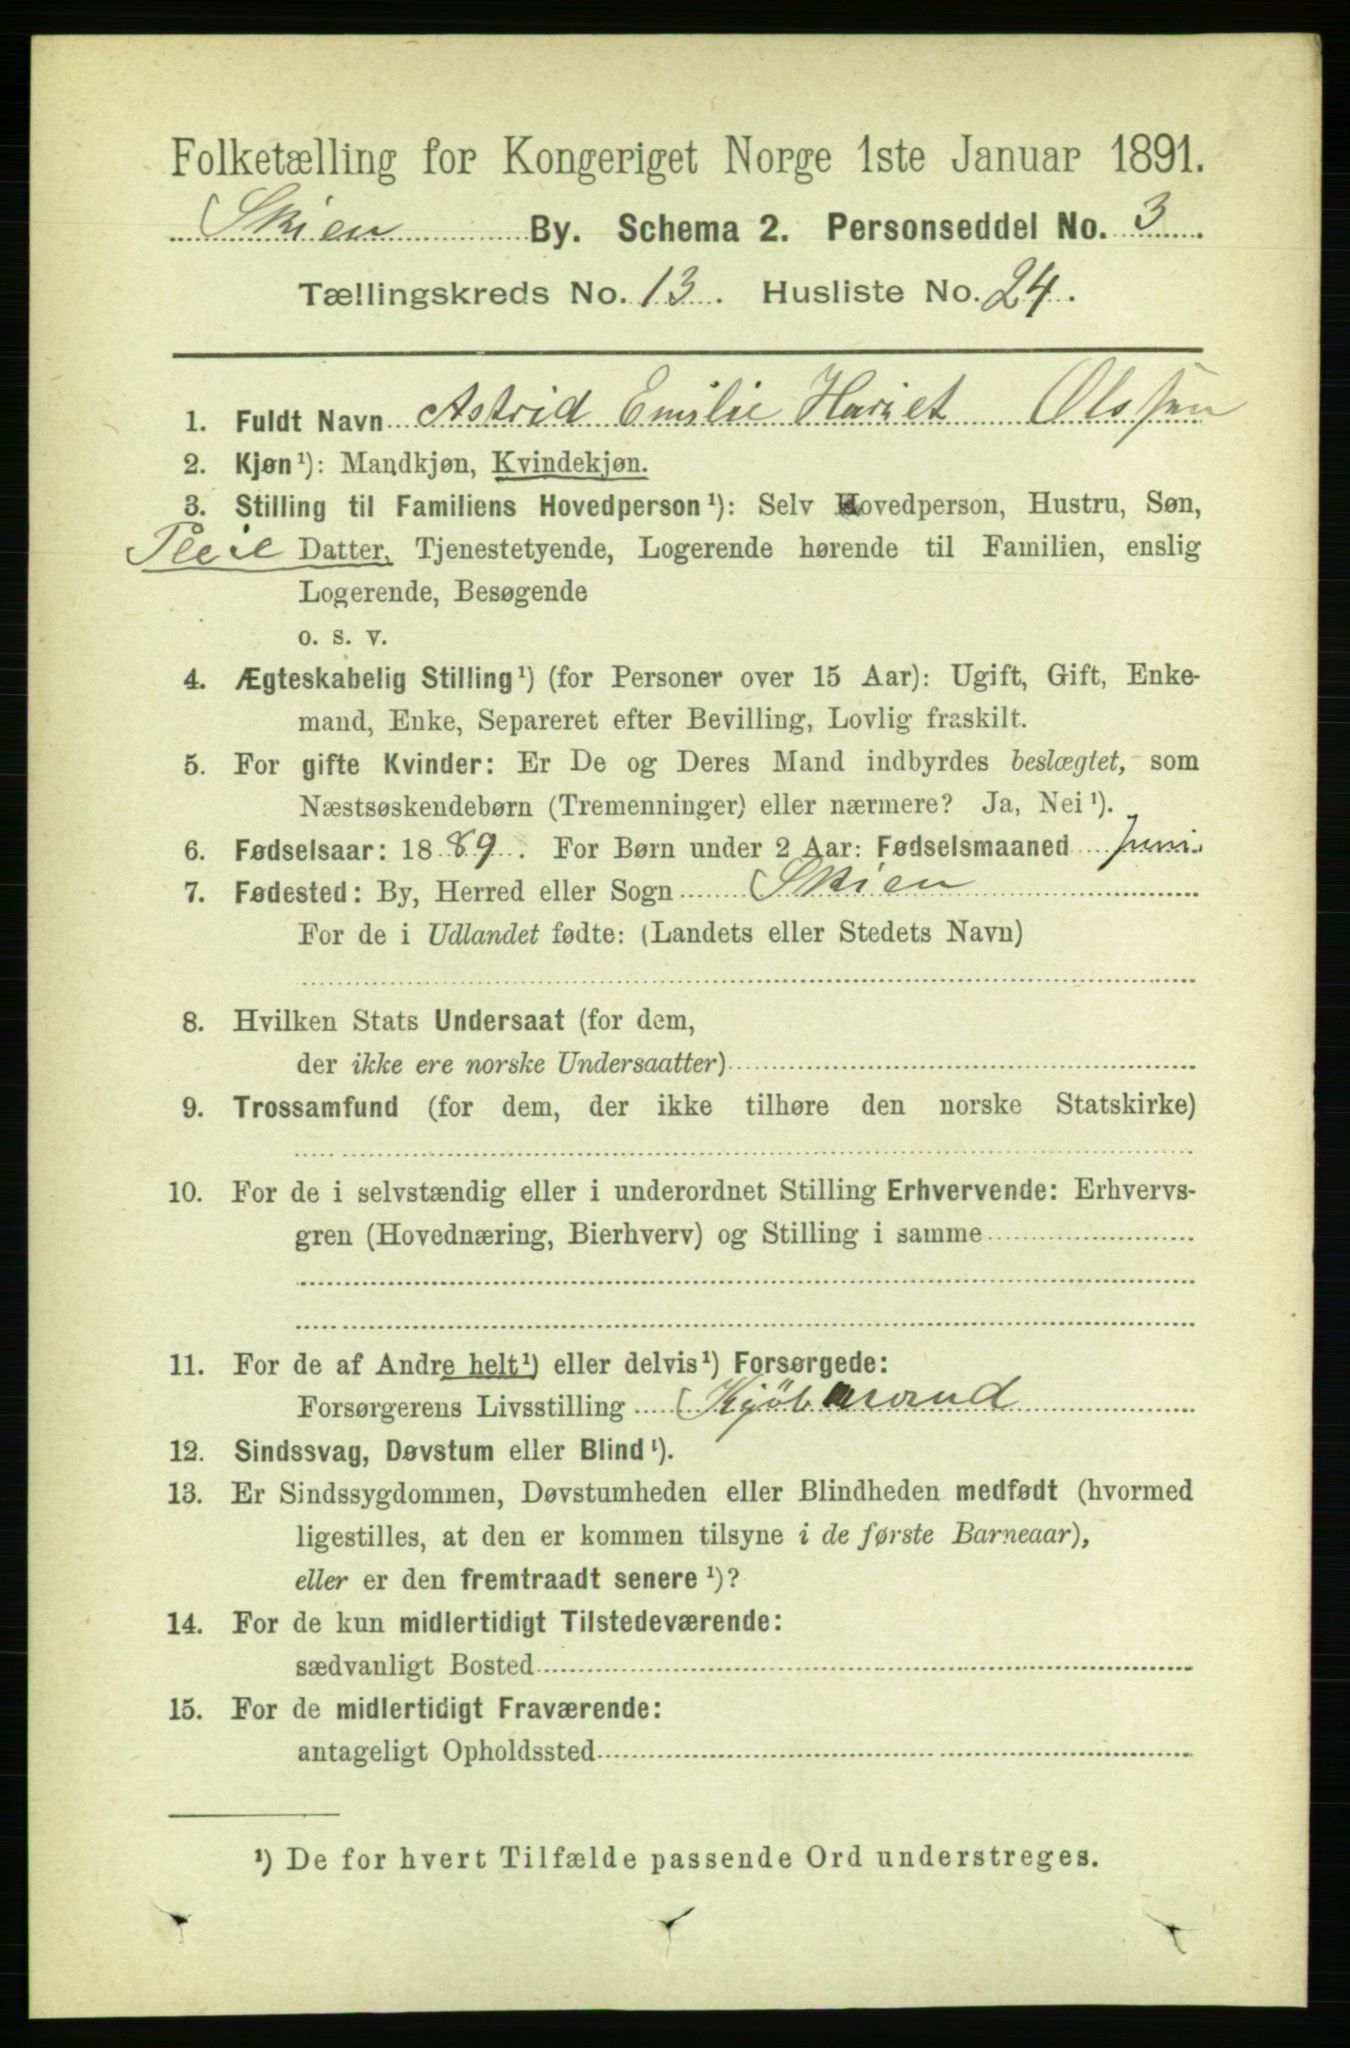 Folketælling for Kongeriget Norge 1ste Januar 1891.
Skien By. Schema 2. Personseddel No. 3.
Tællingskreds No. 13. Husliste No. 24.
1. Fuldt Navn Astrid Emilie Hariet Olssen
2. Kjøn¹): Mandkjøn, Kvindekjøn.
3. Stilling til Familiens Hovedperson¹): Selv Hovedperson, Hustru, Søn,
Pleie Datter, Tjenestetyende, Logerende hørende til Familien, enslig
Logerende, Besøgende
o. s. v.
4. Ægteskabelig Stilling¹) (for Personer over 15 Aar): Ugift, Gift, Enke-
mand, Enke, Separeret efter Bevilling, Lovlig fraskilt.
5. For gifte Kvinder: Er De og Deres Mand indbyrdes beslægtet, som
Næstsøskendebørn (Tremenninger) eller nærmere? Ja, Nei¹).
6. Fødselsaar: 1889. For Børn under 2 Aar: Fødselsmaaned Juni.
7. Fødested: By, Herred eller Sogn Skien
For de i Udlandet fødte: (Landets eller Stedets Navn)
8. Hvilken Stats Undersaat (for dem,
der ikke ere norske Undersaatter)
9. Trossamfund (for dem, der ikke tilhøre den norske Statskirke)
10. For de i selvstændig eller i underordnet Stilling Erhvervende: Erhvervs-
gren (Hovednæring, Bierhverv) og Stilling i samme
11. For de af Andre helt¹) eller delvis¹) Forsørgede:
Forsørgerens Livsstilling Kjöbmand
12. Sindssvag, Døvstum eller Blind¹).
13. Er Sindssygdommen, Døvstumheden eller Blindheden medfødt (hvormed
ligestilles, at den er kommen tilsyne i de første Barneaar),
eller er den fremtraadt senere¹)?
14. For de kun midlertidigt Tilstedeværende:
sædvanligt Bosted
15. For de midlertidigt Fraværende:
antageligt Opholdssted
¹) De for hvert Tilfælde passende Ord understreges.